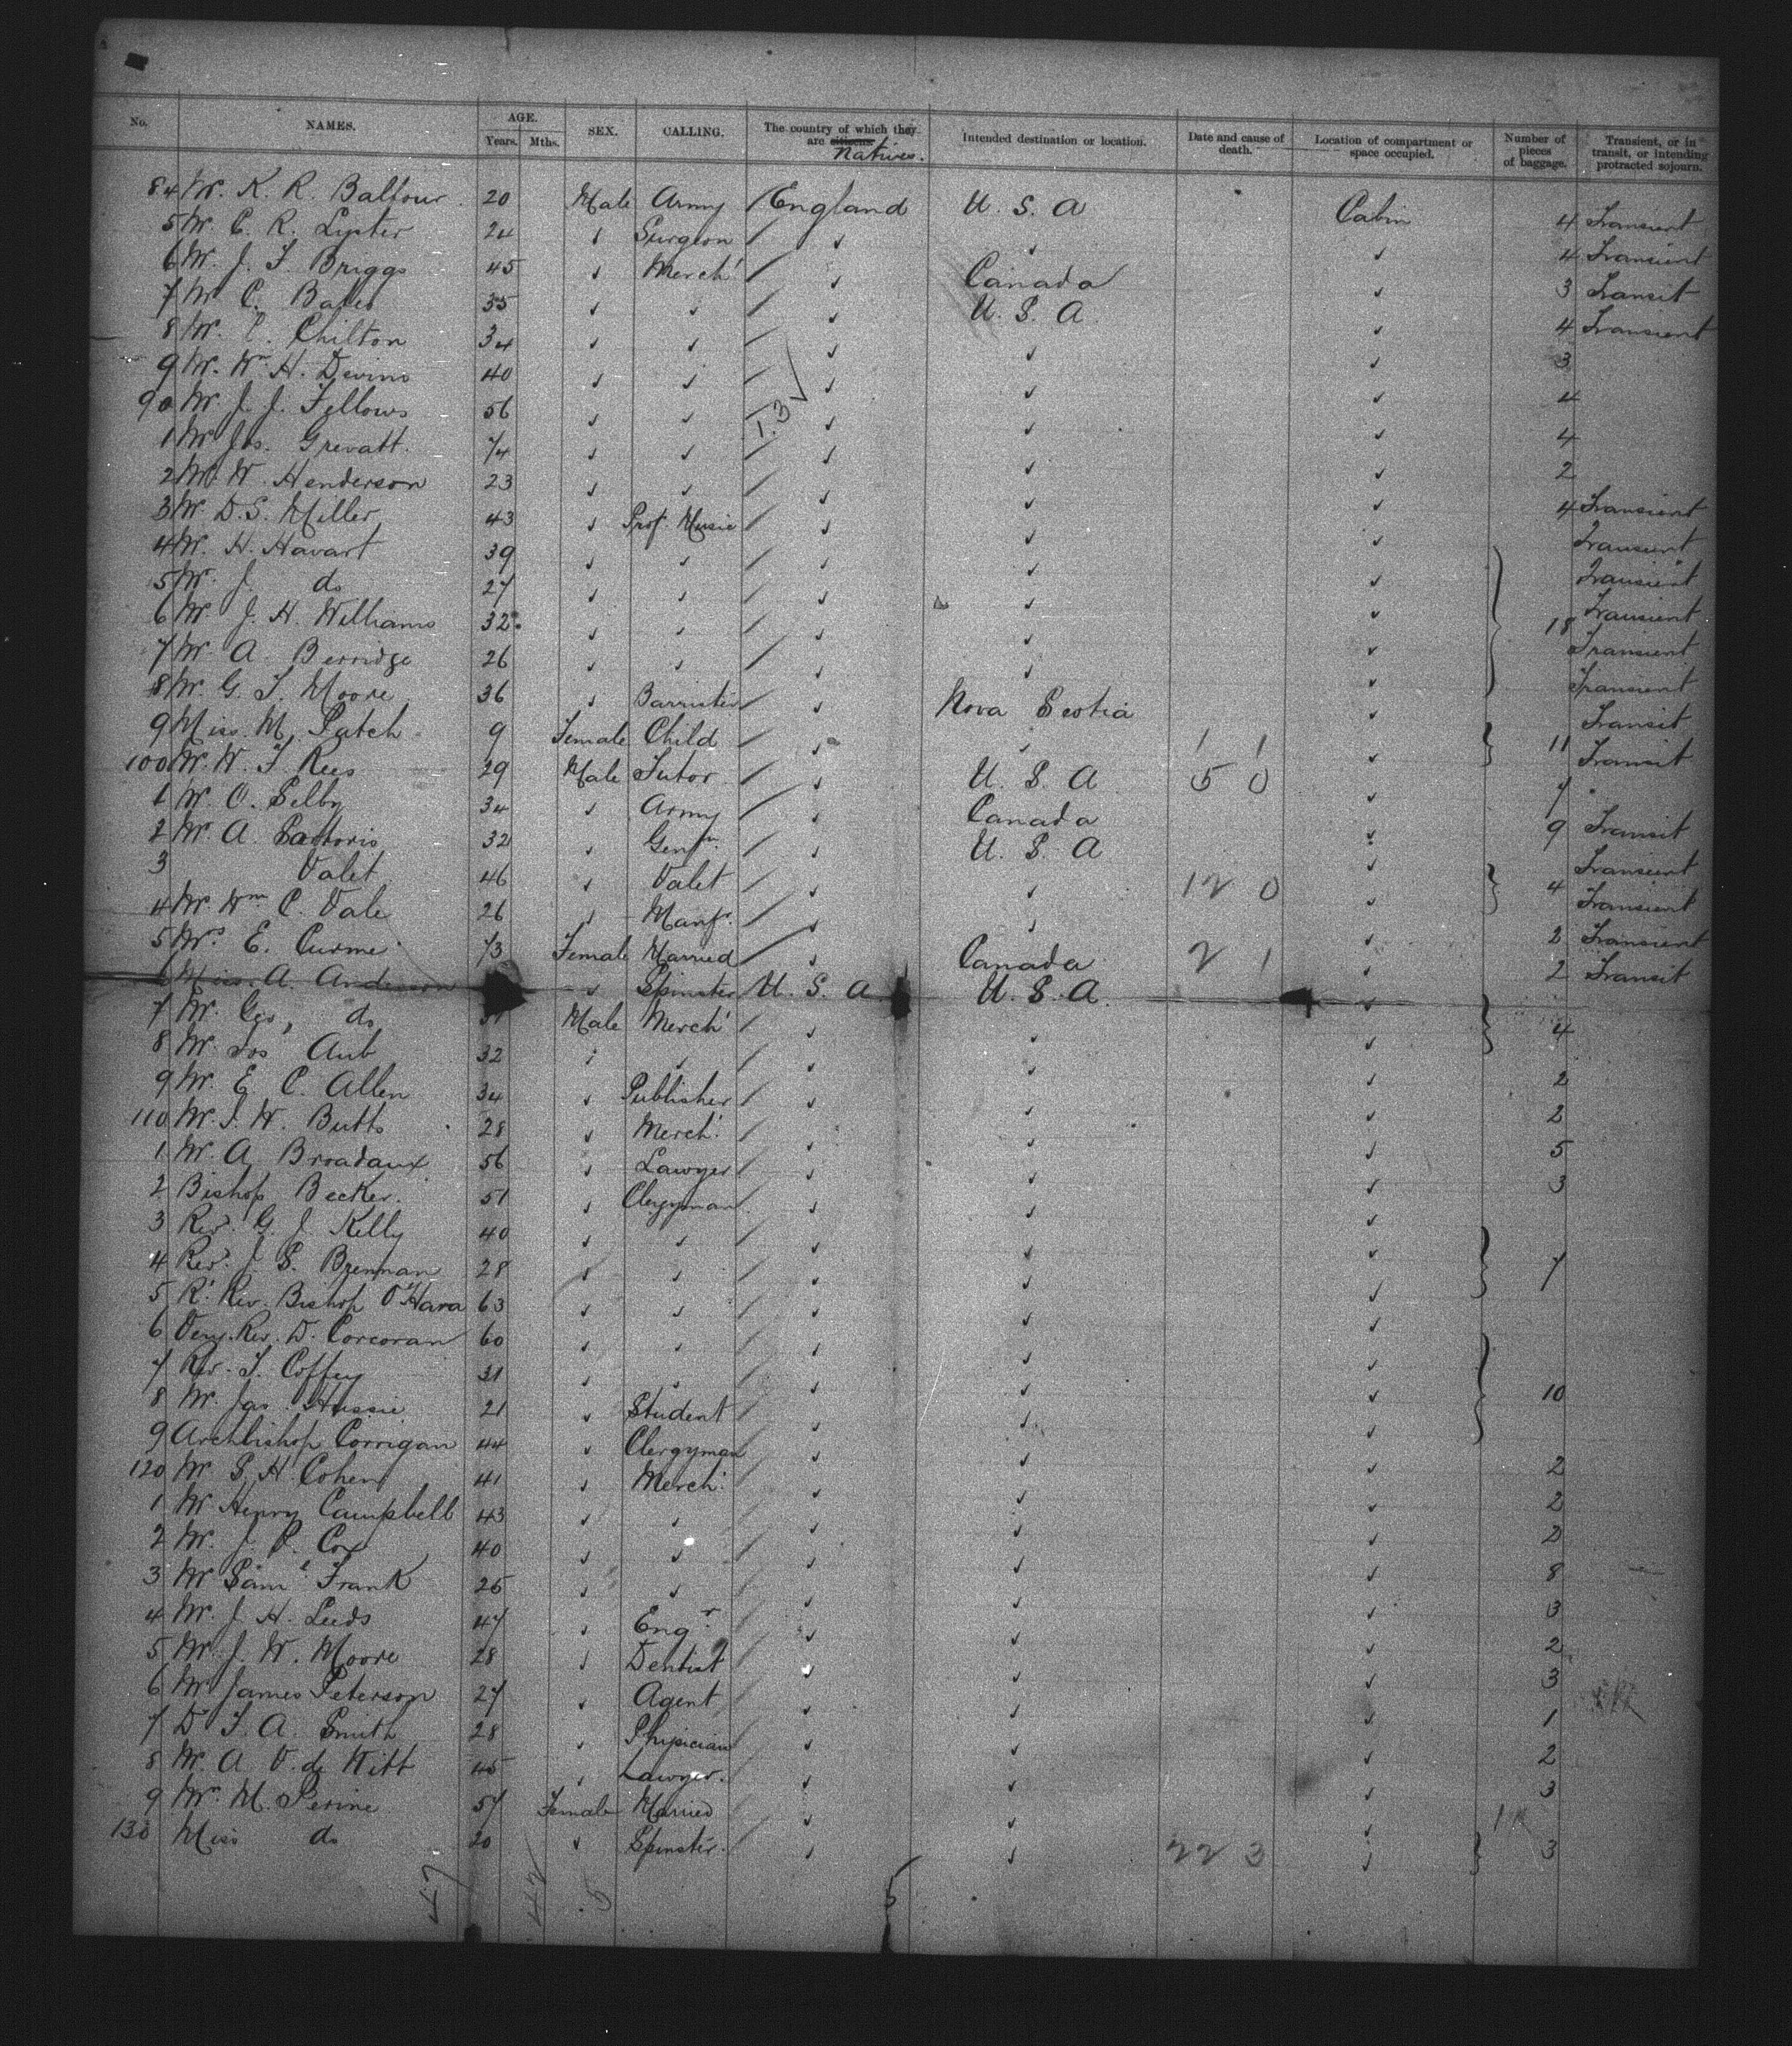 No. NAMES. AGE. Years. Mths. SEX. CALLING. The country of which they are citizens Natives. Intended destination or location. Date and cause of death. Location of compartment or space occupied. Number of pieces of baggage. Transient, or in transit, or intending protracted sojourn.
84 Mr. K. R. Balfour 20 Male Army / England U. S. A Cabin 4 Transient
5 Mr. C. R. Lyster 24 ✓ Surgeon / ✓ ✓ ✓ 4 Transient
6 Mr. J. T. Briggs 45 ✓ Mercht / ✓ Canada ✓ 3 Transit
7 Mr. C. Bates 35 ✓ ✓ / ✓ U. S. A ✓ 4 Transient
8 Mr. C. Chilton 34 ✓ ✓ / ✓ ✓ ✓ 3
9 Mr. Wm H. Devins 40 ✓ ✓ / ✓ ✓ ✓ 4
90 Mr. J. J. Fellows 56 ✓ ✓ / ✓ ✓ ✓ 4
1 Mr. Jos. Grevatt 74 ✓ ✓ / ✓ ✓ ✓ 2
2 Mr. W. Henderson 23 ✓ ✓ / ✓ ✓ ✓ 4 Transient
3 Mr. D. S. Miller 43 ✓ Prof. Music / ✓ ✓ ✓ Transient
4 Mr. H. Havart 39 ✓ ✓ / ✓ ✓ ✓ Transient
5 Mr. J. do 27 ✓ ✓ / ✓ ✓ ✓ 18 Transient
6 Mr. J. H. Williams 32 ✓ ✓ / ✓ ✓ ✓ Transient
7 Mr. A. Berridge 26 ✓ ✓ / ✓ ✓ ✓ Transient
8 Mr. G. T. Moore 36 ✓ Barrister / ✓ Nova Scotia ✓ Transit
9 Miss. M. Patch 9 Female Child / ✓ ✓ 1 1 ✓ 11 Transit
100 Mr. W. T. Rees 29 Male Tutor / ✓ U. S. A 5 0 ✓ 7
1 Mr. O. Selby 34 ✓ Army / ✓ Canada ✓ 9 Transit
2 Mr. A. Sartoris 32 ✓ Gentn. / ✓ U. S. A ✓ Transient
3 Valet 46 ✓ Valet / ✓ ✓ 12 0 ✓ 4 Transient
4 Mr. Wm C. Vale 26 ✓ Manfr. / ✓ ✓ ✓ 2 Transient
5 Mrs E. Curme 73 Female Married / ✓ Canada 2 1 ✓ 2 Transit
6 Miss. A. Anderson ✓ Spinster U. S. A U. S. A. ✓
7 Mr. Geo, do Male Merct / ✓ ✓ ✓ 4
8 Mr. Jos Aub 32 ✓ ✓ / ✓ ✓ ✓ 2
9 Mr. E. C. Allen 34 ✓ Publisher / ✓ ✓ ✓ 2
110 Mr. J. W. Butts 28 ✓ Merct. / ✓ ✓ ✓ 5
1 Mr. A. Broadaux 56 ✓ Lawyer / ✓ ✓ ✓ 3
2 Bishop Becker. 51 ✓ Clergyman ✓ ✓ ✓
3 Rev. G. J. Kelly 40 ✓ ✓ / ✓ ✓ ✓ 7
4 Rev. J. S. Brennan 28 ✓ ✓ / ✓ ✓ ✓
5 Rt Rev. Bishop O'Hara 63 ✓ ✓ / ✓ ✓ ✓
6 Very. Rev. D. Corcoran 60 ✓ ✓ / ✓ ✓ ✓
7 Rev. T. Coffey 31 ✓ ✓ / ✓ ✓ ✓ 10
8 Mr. Jas. Hussie 21 ✓ Student / ✓ ✓ ✓
9 Archbishop Corrigan 44 ✓ Clergyman ✓ ✓ ✓ 2
120 Mr S. H. Cohen 41 ✓ Merct. / ✓ ✓ ✓ 2
1 Mr Henry Campbell 43 ✓ ✓ / ✓ ✓ ✓ 2
2 Mr. J. P. Cox 40 ✓ ✓ / ✓ ✓ ✓ 8
3 Mr Saml Frank 25 ✓ ✓ / ✓ ✓ ✓ 3
4 Mr. J. H. Leeds 47 ✓ Engr. / ✓ ✓ ✓ 2
5 Mr. J. W. Moore 28 ✓ Dentist / ✓ ✓ ✓ 3
6 Mr James Peterson 27 ✓ Agent / ✓ ✓ ✓ 1
7 Dr T. A. Smith 28 ✓ Phisician ✓ ✓ ✓ 2
8 Mr. A. V. de Witt 45 ✓ Lawyer. ✓ ✓ ✓ 3
9 Mrs. M. Perine 57 Female Married ✓ ✓ ✓
130 Miss do 20 ✓ Spinster. ✓ ✓ 22 3 ✓ 3
47 42 5